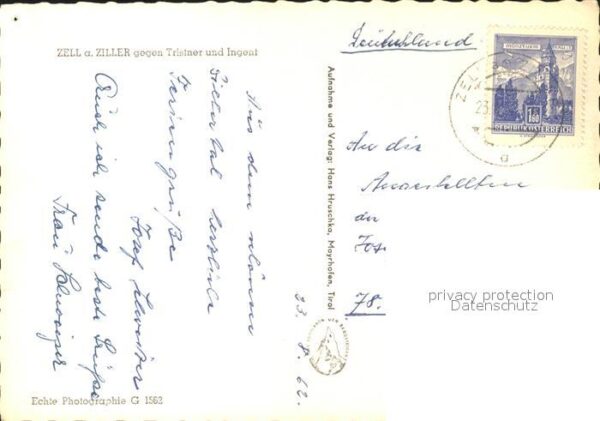 ZELL a. ZILLER gegen Tristner und Ingent
Aus dem schönen
Zillertal herzliche
Feriengrüße
Josef
Auch ich sende beste Grüße
Frau
23. 8. 62.
Echte Photographie G 1562
Aufnahme und Verlag: Hans Hruschka, Mayrhofen, Tirol
Deutschland
REPUBLIK ÖSTERREICH
1.60
ZELL
23.
a
An die
Angestellten
der
78.
privacy protection
Datenschutz